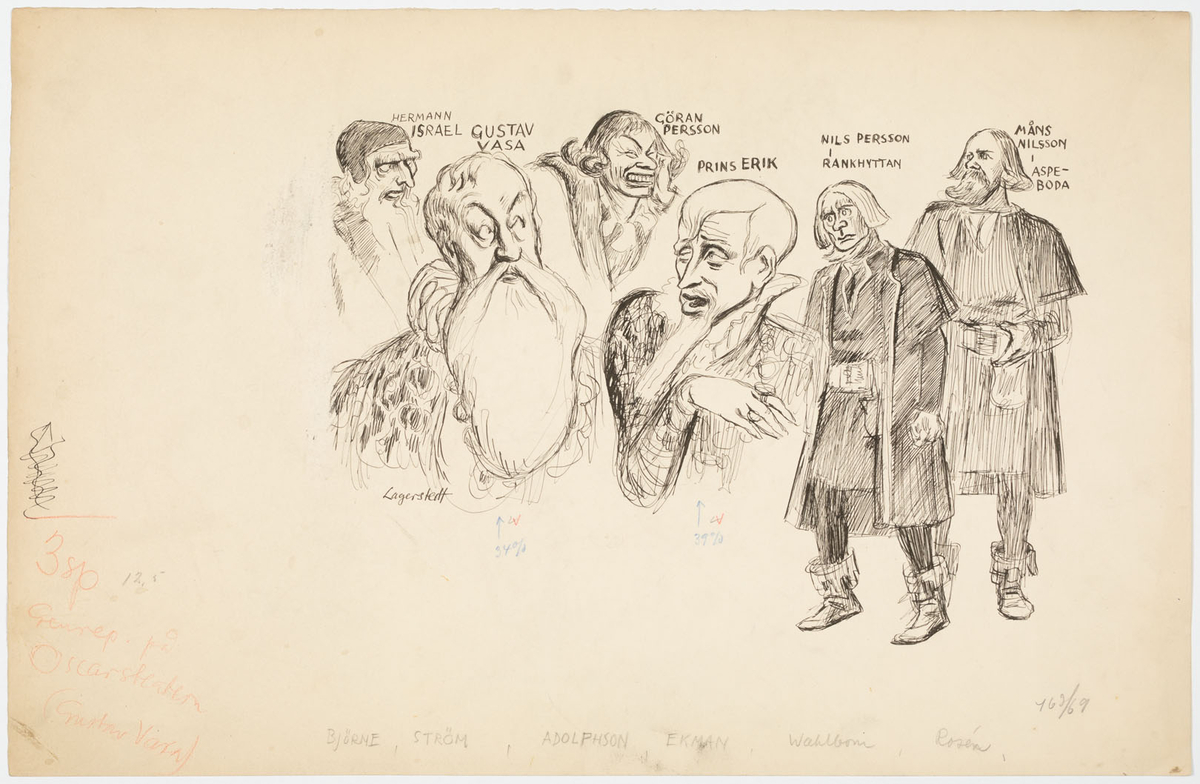 HERMANN
ISRAEL
GUSTAV
VASA
GÖRAN
PERSSON
PRINS ERIK
NILS PERSSON
I
RANKHYTTAN
MÅNS
NILSSON
I
ASPE-
BODA
Lagerstedt
34%
39%
3 sp
12,5
Genrep. på
Oscarsteatern
(Gustav Vasa)
163/69
BJÖRNE , STRÖM , ADOLPHSON EKMAN , Wahlbom , Rosén